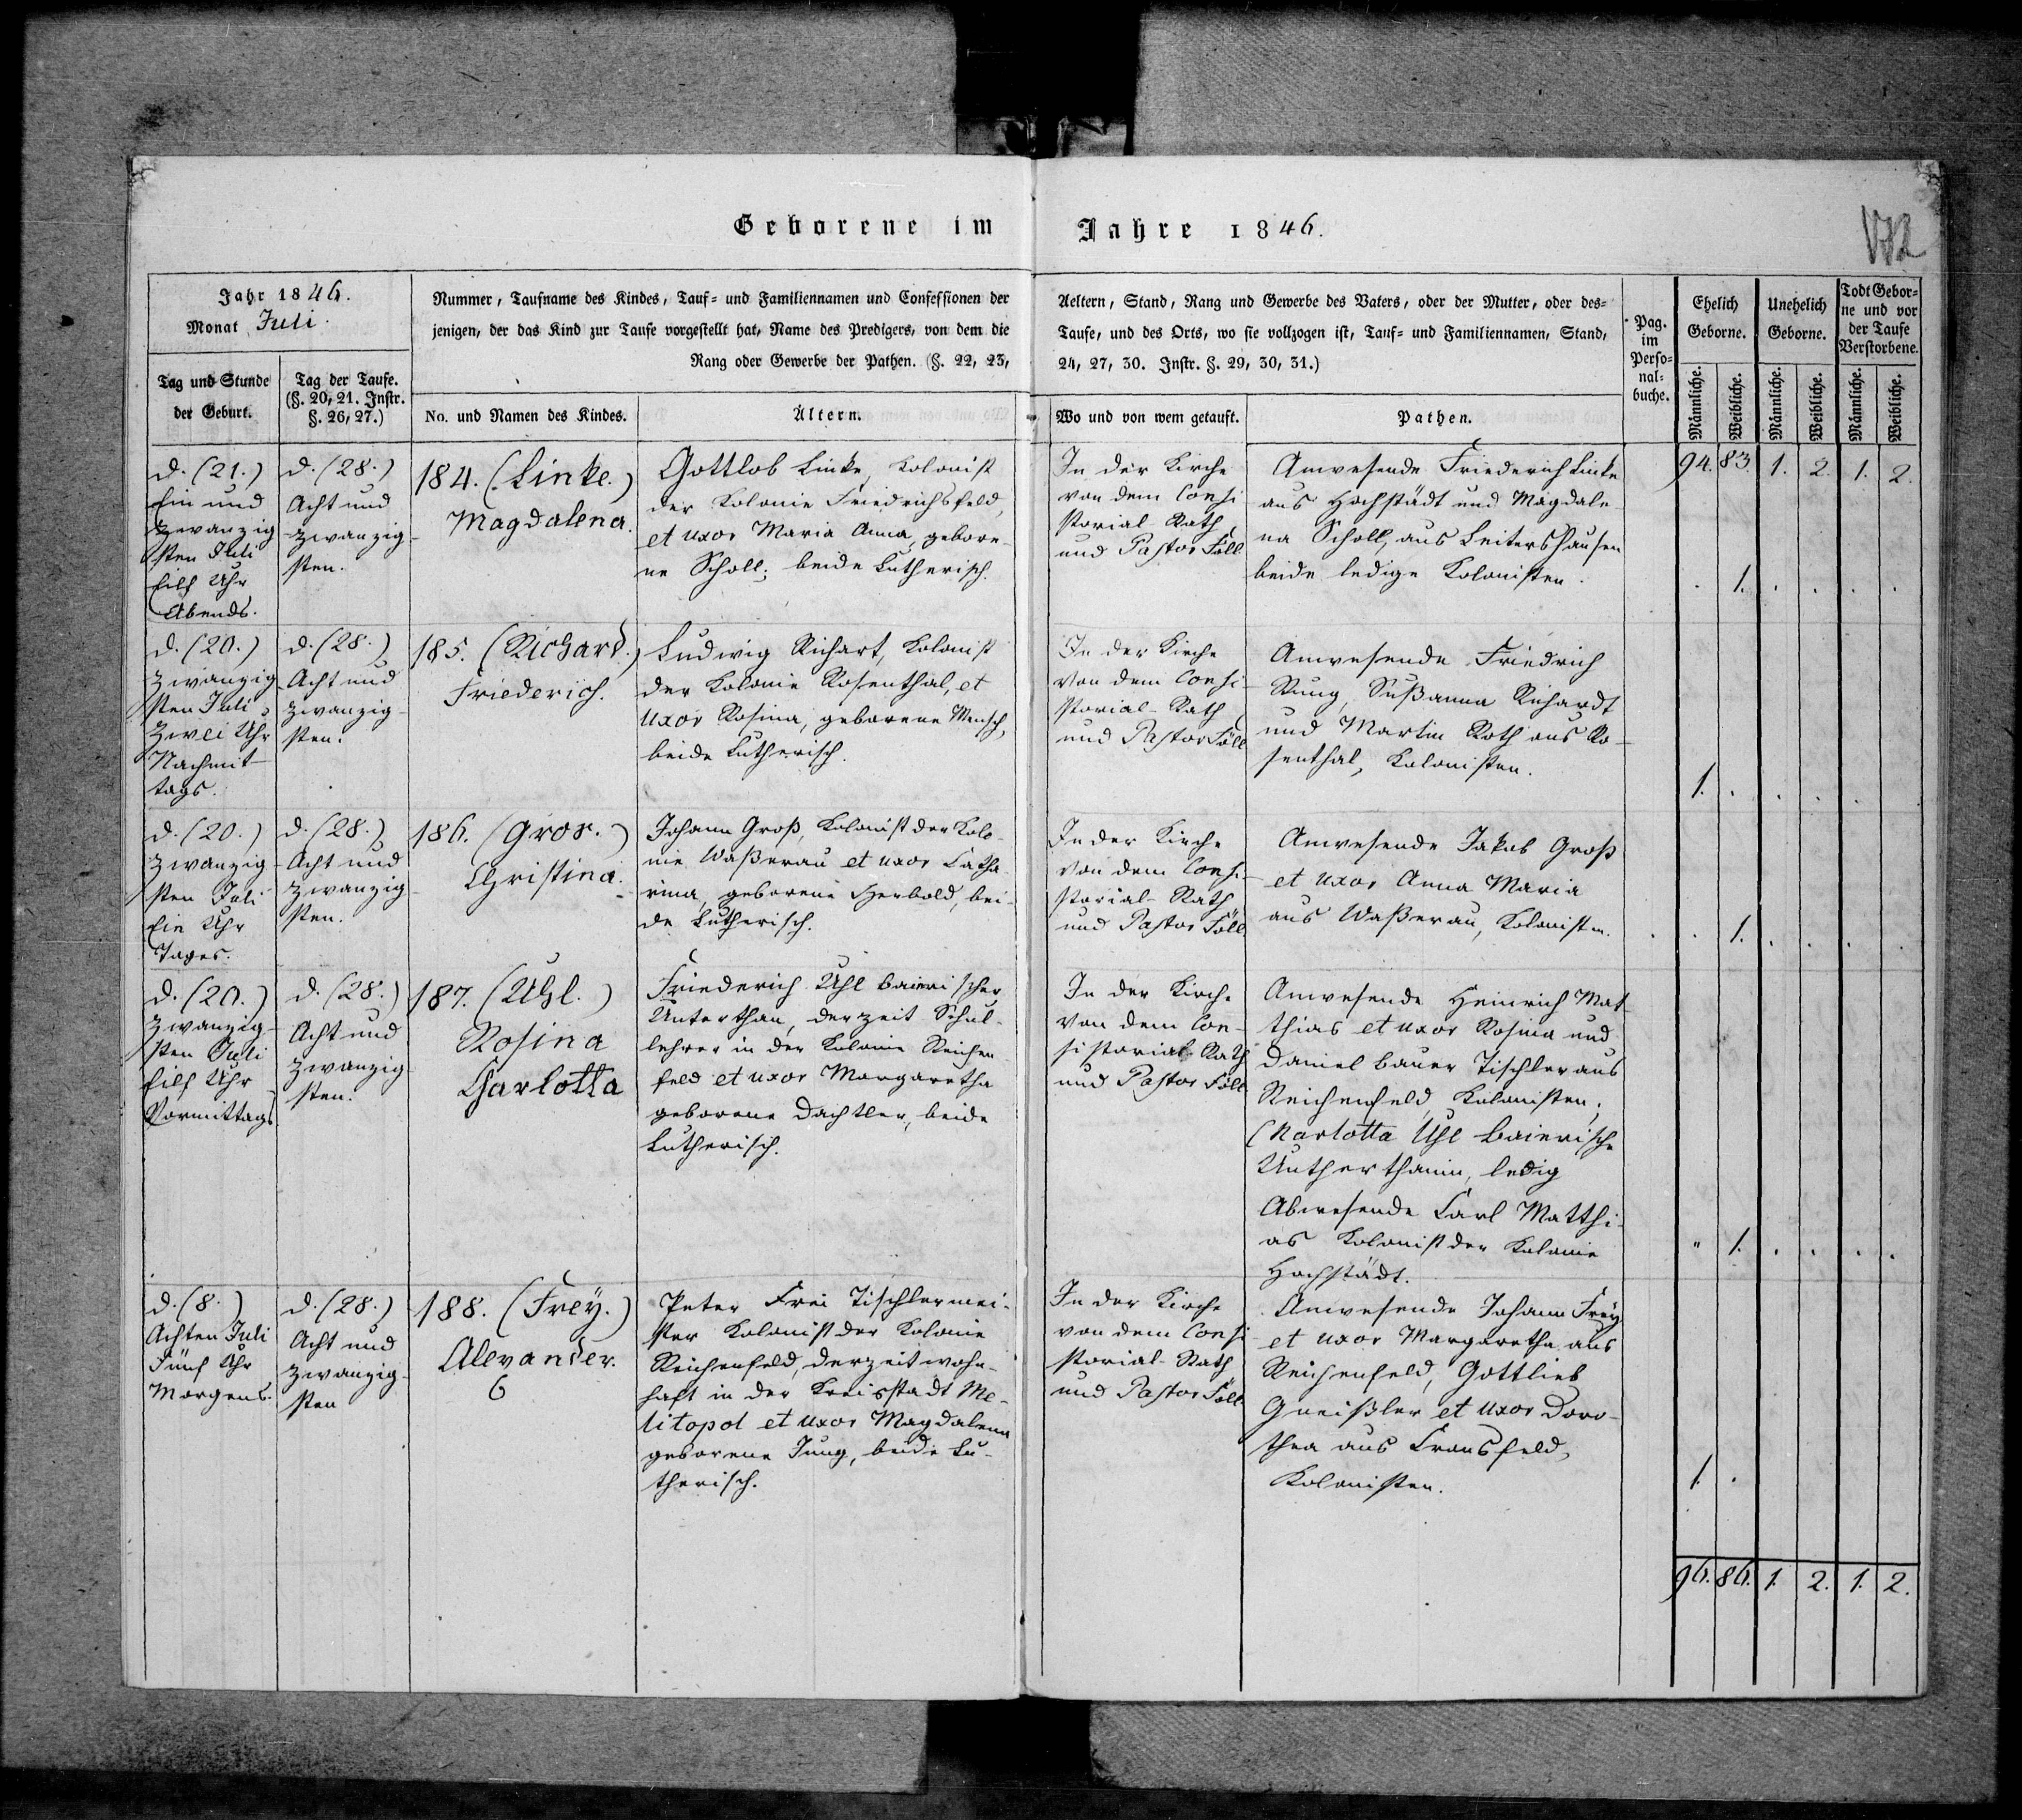 Geborene im Jahre 1846.
172
Jahr 1846.
Monat Juli.
Tag und Stunde
der Geburt.
Tag der Taufe.
(§. 20, 21. Instr.
§. 26, 27.)
Nummer, Taufname des Kindes, Tauf- und Familiennamen und Confessionen der
jenigen, der das Kind zur Taufe vorgestellt hat, Name des Predigers, von dem die
Rang oder Gewerbe der Pathen. (§. 22, 23,
No. und Namen des Kindes.
Ältern.
Aeltern, Stand, Rang und Gewerbe des Vaters, oder der Mutter, oder des-
Taufe, und des Orts, wo sie vollzogen ist, Tauf- und Familiennamen, Stand,
24, 27, 30. Instr. §. 29, 30, 31.)
Wo und von wem getauft.
Pathen.
Pag.
im
Perso-
nal-
buche.
Ehelich
Geborne.
Unehelich
Geborne.
Todt Gebor-
ne und vor
der Taufe
Verstorbene.
Männliche.
Weibliche.
Männliche.
Weibliche.
Männliche.
Weibliche.
d. (21.)
Ein und
Zwanzig
sten Juli
Eilf Uhr
Abends.
d. (28.)
Acht und
zwanzig-
sten.
184. (Linke.)
Magdalena.
Gottlob Linke, Kolonist
der Kolonie Friedrichsfeld,
et uxor Maria Anna, gebore-
ne Scholl; beide Lutherisch.
In der Kirche
von dem Consi
storial-Rath
und Pastor Föll
Anwesende Friederich Linke
aus Hochstädt und Magdale-
na Scholl, aus Leitershausen
beide ledige Kolonisten.
94. 83. 1. 2. 1. 2.
. 1. . . . .
d. (20.)
Zwanzig
sten Juli
Zwei Uhr
Nachmit-
tags.
d. (28.)
Acht und
zwanzig-
sten.
185. (Richard.)
Friederich.
Ludwig Richart, Kolonist
der Kolonie Rosenthal, et
uxor Rosina, geborene Mensch,
beide Lutherisch.
In der Kirche
von dem Consi-
storial-Rath
und Pastor Föll
Anwesende Friedrich
Rung, Sußanna Richardt
und Martin Roth aus Ro-
senthal, Kolonisten.
1. . . . .
d. (20.)
Zwanzig-
sten Juli
Ein Uhr
Tages.
d. (28.)
Acht und
zwanzig-
sten.
186. (Gros.)
Christina.
Johann Groß, Kolonist der Kolo-
nie Waßerau et uxor Catha-
rina, geborene Herbold, bei-
de Lutherisch.
In der Kirche
von dem Consi-
storial-Rath
und Pastor Föll.
Anwesende Jakob Groß
et uxor Anna Maria
aus Waßerau, Kolonisten.
. . 1. . . . .
d. (20.)
Zwanzig-
sten Juli
Eilf Uhr
Vormittags
d. (28.)
Acht und
zwanzig-
sten.
187. (Uhl.)
Rosina
Charlotta
Friederich Uhl baierischer
Unterthan, derzeit Schul-
lehrer in der Kolonie Reichen-
feld et uxor Margaretha
geborene Dachtler, beide
Lutherisch.
In der Kirche
von dem Con-
sistorial-Rath
und Pastor Föll
Anwesende Heinrich Mat-
thias et uxor Rosina und
Daniel Bauer Tischler aus
Reichenfeld, Kolonisten;
Charlotta Uhl baierische
Untherthanin, ledig
Abwesende Carl Matthi-
as Kolonist der Kolonie
Hochstädt.
" 1. . . . .
d. (8.)
Achten Juli
Fünf Uhr
Morgens.
d. (28.)
Acht und
zwanzig-
sten
188. (Frey.)
Alexander.
6
Peter Frei Tischlermei-
ster Kolonist der Kolonie
Reichenfeld, derzeit wohn-
haft in der Kreisstadt Me-
litopol et uxor Magdalena
geborene Jung, beide Lu-
therisch.
In der Kirche
von dem Consi
storial-Rath
und Pastor Föll
Anwesende Johann Frey
et uxor Margaretha aus
Reichenfeld, Gottlieb
Gneißler et uxor Doro-
thea aus Kronsfeld,
Kolonisten.
1. .
96. 86. 1. 2. 1. 2.